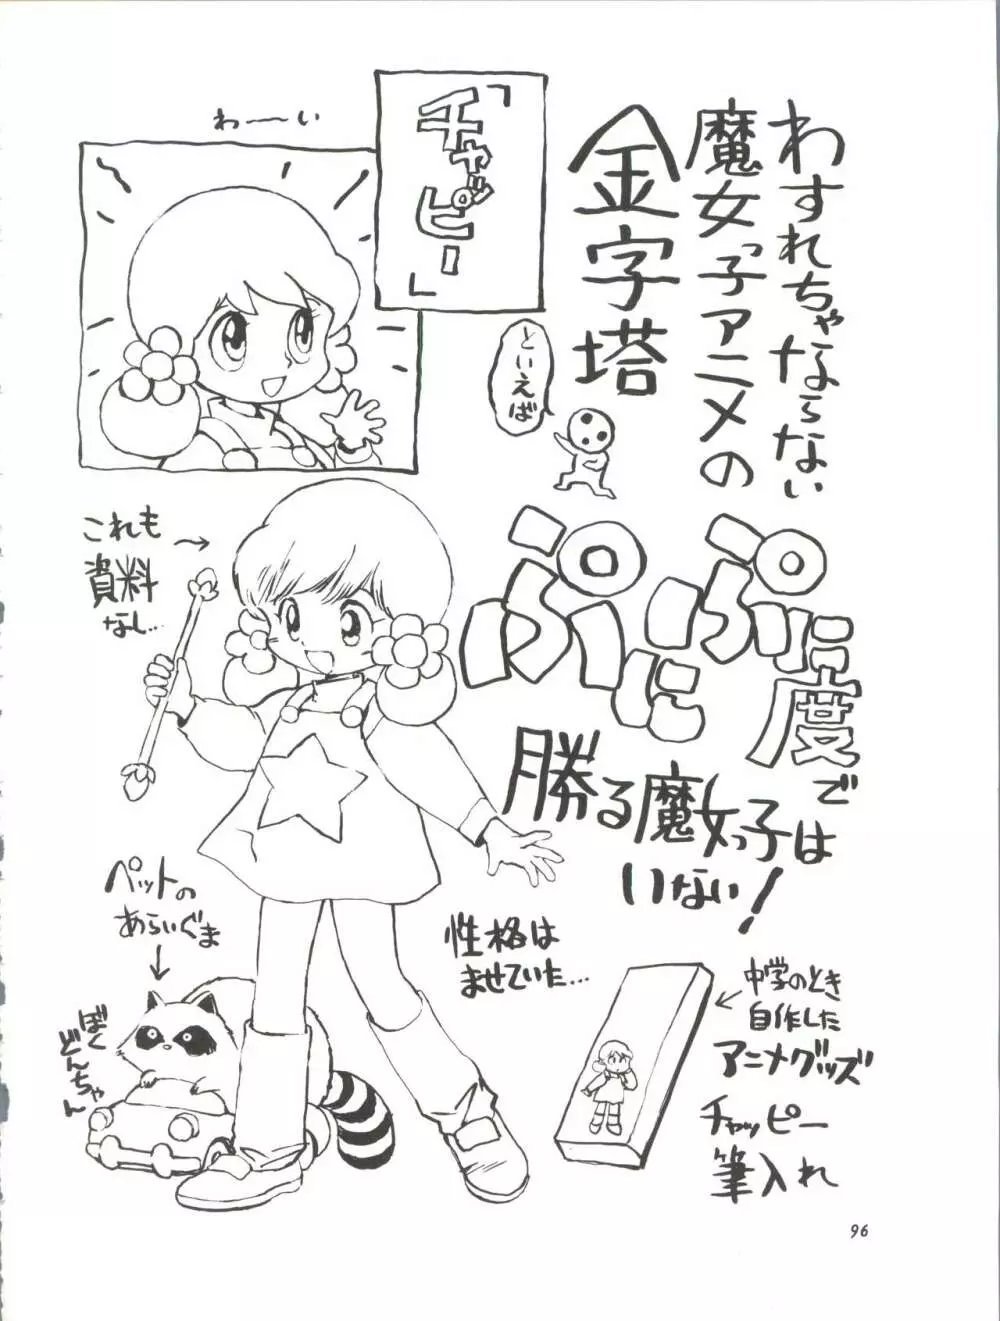 わすれちゃならない
魔女っ子アニメの
金字塔
といえば
「チャッピー」
わーい
ぷにぷに度では
勝る魔女っ子
いない！
これも
資料
なし…
ペットの
あらいぐま
ぼく
どんちゃん
性格は
ませていた…
中学のとき
自作した
アニメグッズ
チャッピー
筆入れ
96